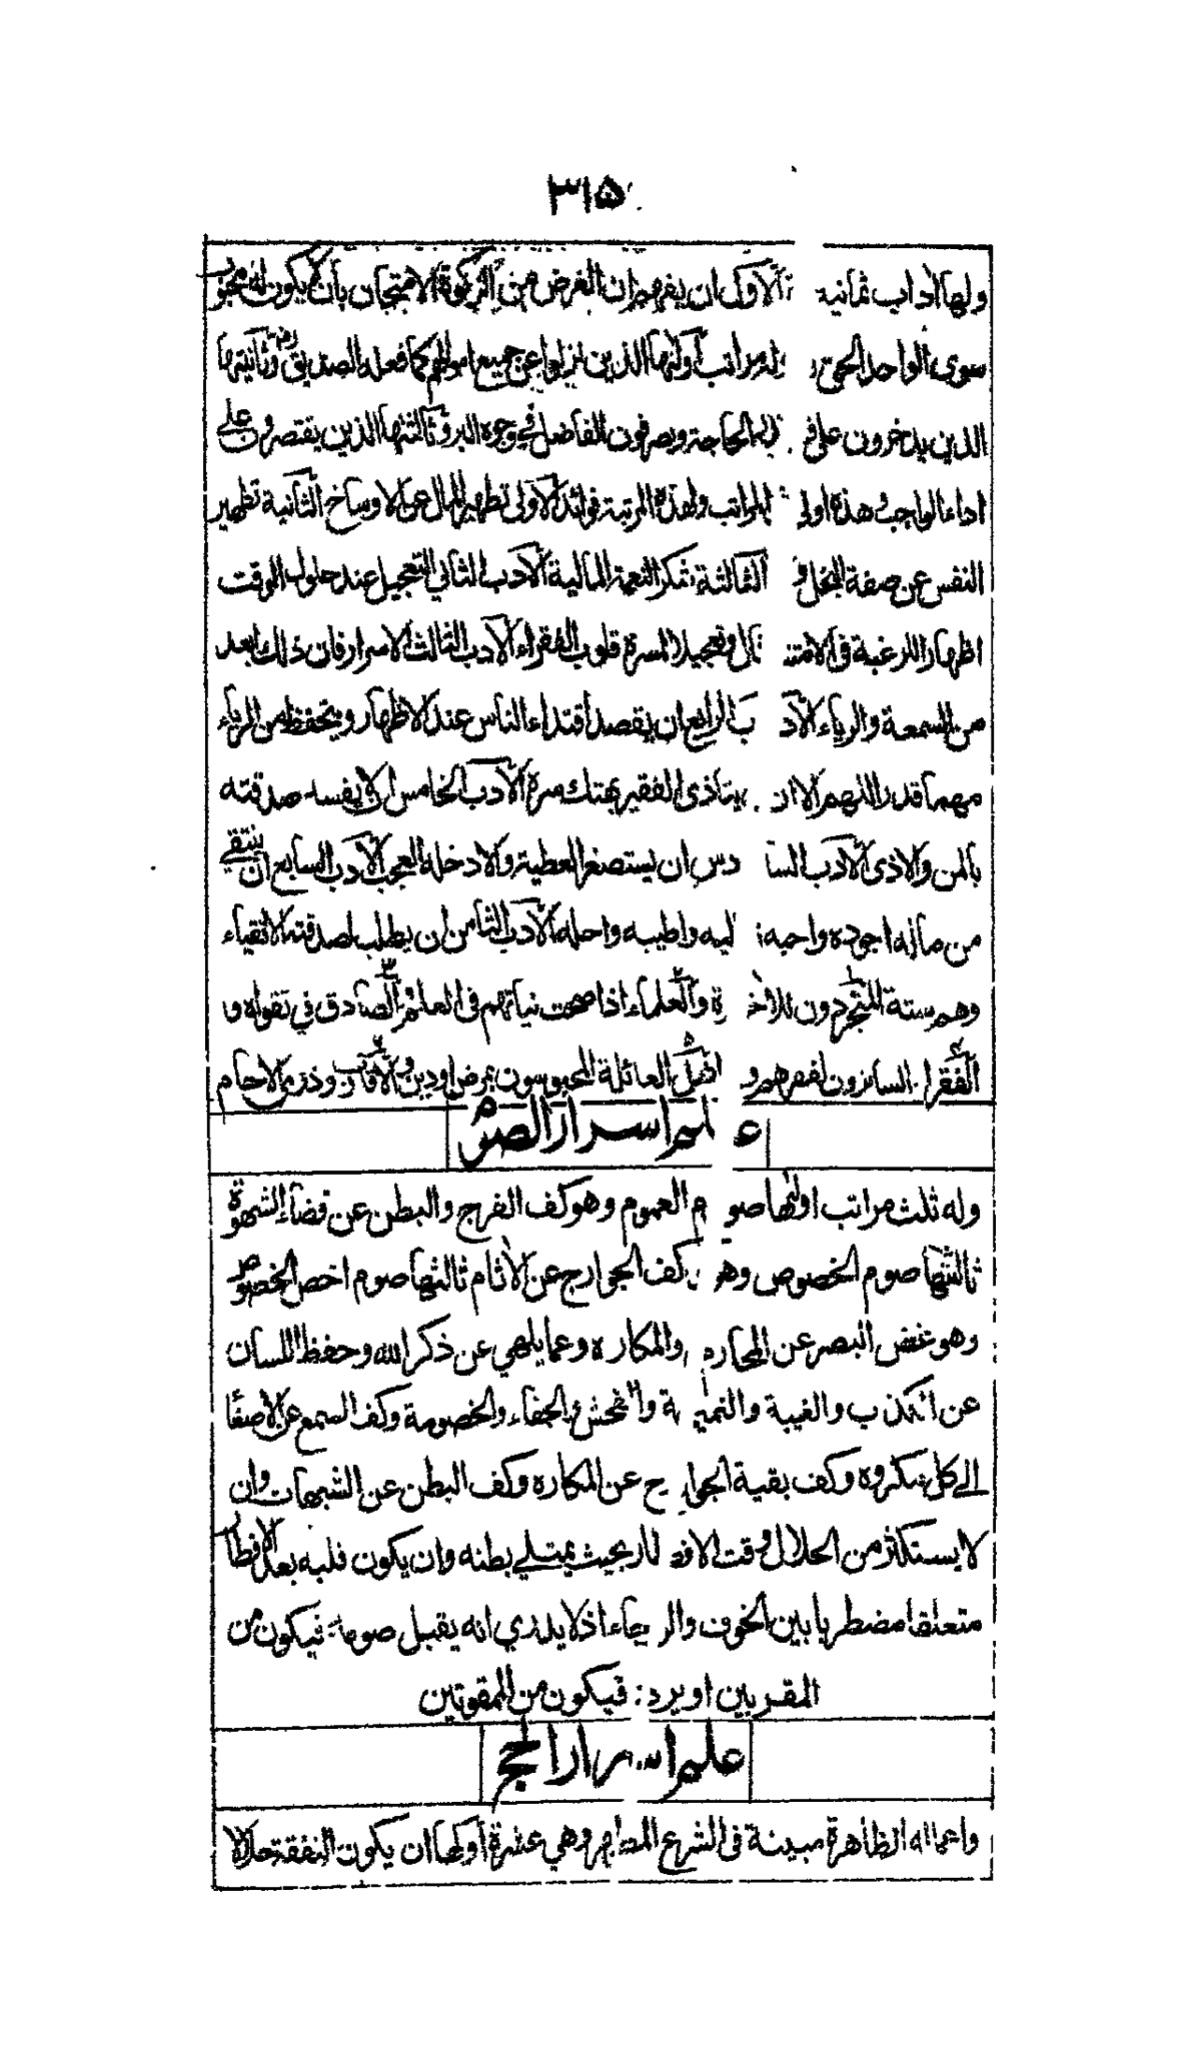 ٣١٥
ولها آداب ثمانية الأول ان يفهم ان الغرض من الزكوة الامتحان بان لا يكون له محبوب
سوى الواحد الحق وله مراتب اولها الذين نزلوا عن جميع اموالهم كما فعله الصديق رض وثانيتها
الذين يدخرون على قدر الحاجة ويصرفون الفاضل في وجوه البر وثالثتها الذين يقتصرون على
اداء الواجب وهذه اولى المراتب ولهذه المرتبة فوائد الاولى تطهير المال عن الاوساخ الثانية تطهير
النفس عن صفة البخل و الثالثة شكر النعمة المالية الأدب الثاني التعجيل عند حلول الوقت
اظهارا للرغبة في الامتثال وتعجيلا لمسرة قلوب الفقراء الأدب الثالث الاسرار فان ذلك ابعد
من السمعة والرياء الأدب الرابع ان يقصد اقتداء الناس عند الاظهار ويتحفظ من الرياء
مهما قدر اللهم الا ان يتاذى الفقير بهتك سره الأدب الخامس ان لا يفسد صدقته
بالمن والاذى الأدب السادس ان يستصغر العطية والا دخله العجب الأدب السابع ان ينتقي
من ماله اجوده واحبه اليه واطيبه واحله الأدب الثامن ان يطلب لصدقته الاتقياء
وهم ستة المتجردون للآخرة والعلماء اذا صحت نياتهم في العلم والصادق في تقواه و
الفقراء الساترون لفقرهم و العائلة المحبوسون بمرض او دين والاقارب وذوي الارحام
علم اسرار الصوم
وله ثلث مراتب اولها صوم العموم وهو كف الفرج والبطن عن قضاء الشهوة
ثالثتها صوم الخصوص وهو كف الجوارح عن الآثام ثالثتها صوم اخص الخصوص
وهو غض البصر عن المحارم والمكاره وعما يلهي عن ذكر الله وحفظ اللسان
عن الكذب والغيبة والنميمة والفحش والجفاء والخصومة وكف السمع عن الاصغا
الى كل مكروه وكف بقية الجوارح عن المكاره وكف البطن عن الشبهات وان
لا يستكثر من الحلال وقت الافطار بحيث يمتلي بطنه وان يكون قلبه بعد الافطار
متعلقا مضطربا بين الخوف والرجاء اذ لا يدري انه يقبل صومه فيكون من
المقربين او يرد فيكون من الممقوتين
علم اسرار الحج
واعماله الظاهرة مبينة في الشرع المطهر وهي عشرة أولها ان يكون النفقة حلالا